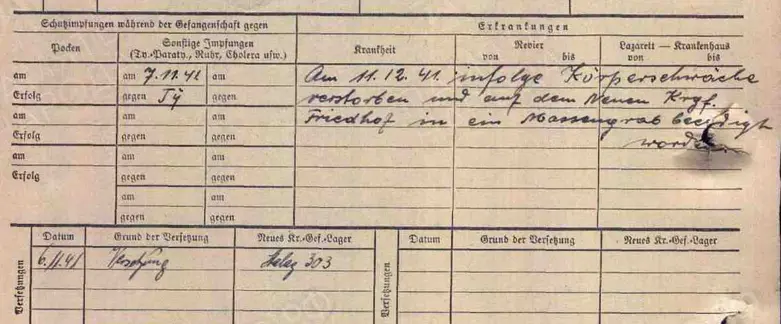 Schutzimpfungen während der Gefangenschaft gegen
Erkrankungen
Pocken
Sonstige Impfungen
(Ty.-Paraty., Ruhr, Cholera usw.)
Krankheit
Revier
von bis
Lazarett — Krankenhaus
von bis
am am 7.11.41 am Am 11.12.41. infolge Körperschwäche
Erfolg gegen Ty gegen verstorben und auf dem Neuen Krgf.
am am am Friedhof in ein Massengrab beerdigt
Erfolg gegen gegen worden.
am am am
Erfolg gegen gegen
am am
gegen gegen
Versetzungen
Datum Grund der Versetzung Neues Kr.-Gef.-Lager
6.11.41 Versetzung Stalag 303
Versetzungen
Datum Grund der Versetzung Neues Kr.-Gef.-Lager